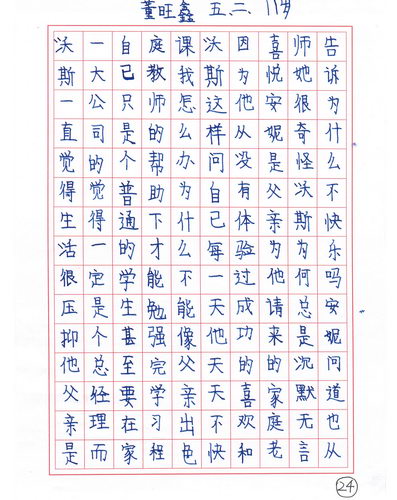 董旺鑫 五、二、11岁
沃斯一直觉得生活很压抑他父亲是
一大公司的觉得一定是个总经理而
自己只是个普通的学生甚至要在家
庭教师的帮助下才能勉强完学习程
课我怎么办为什么不能像父亲出色
沃斯这样问自己每一天他天天不快
因为他从没有体验过成功的喜欢和
喜悦安妮是父亲为他请来的家庭老
师她很奇怪沃斯为何总是沉默无言
告诉为什么不快乐吗安妮问道也从
24